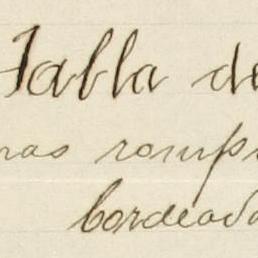 Tabla de
nas romp
bordead